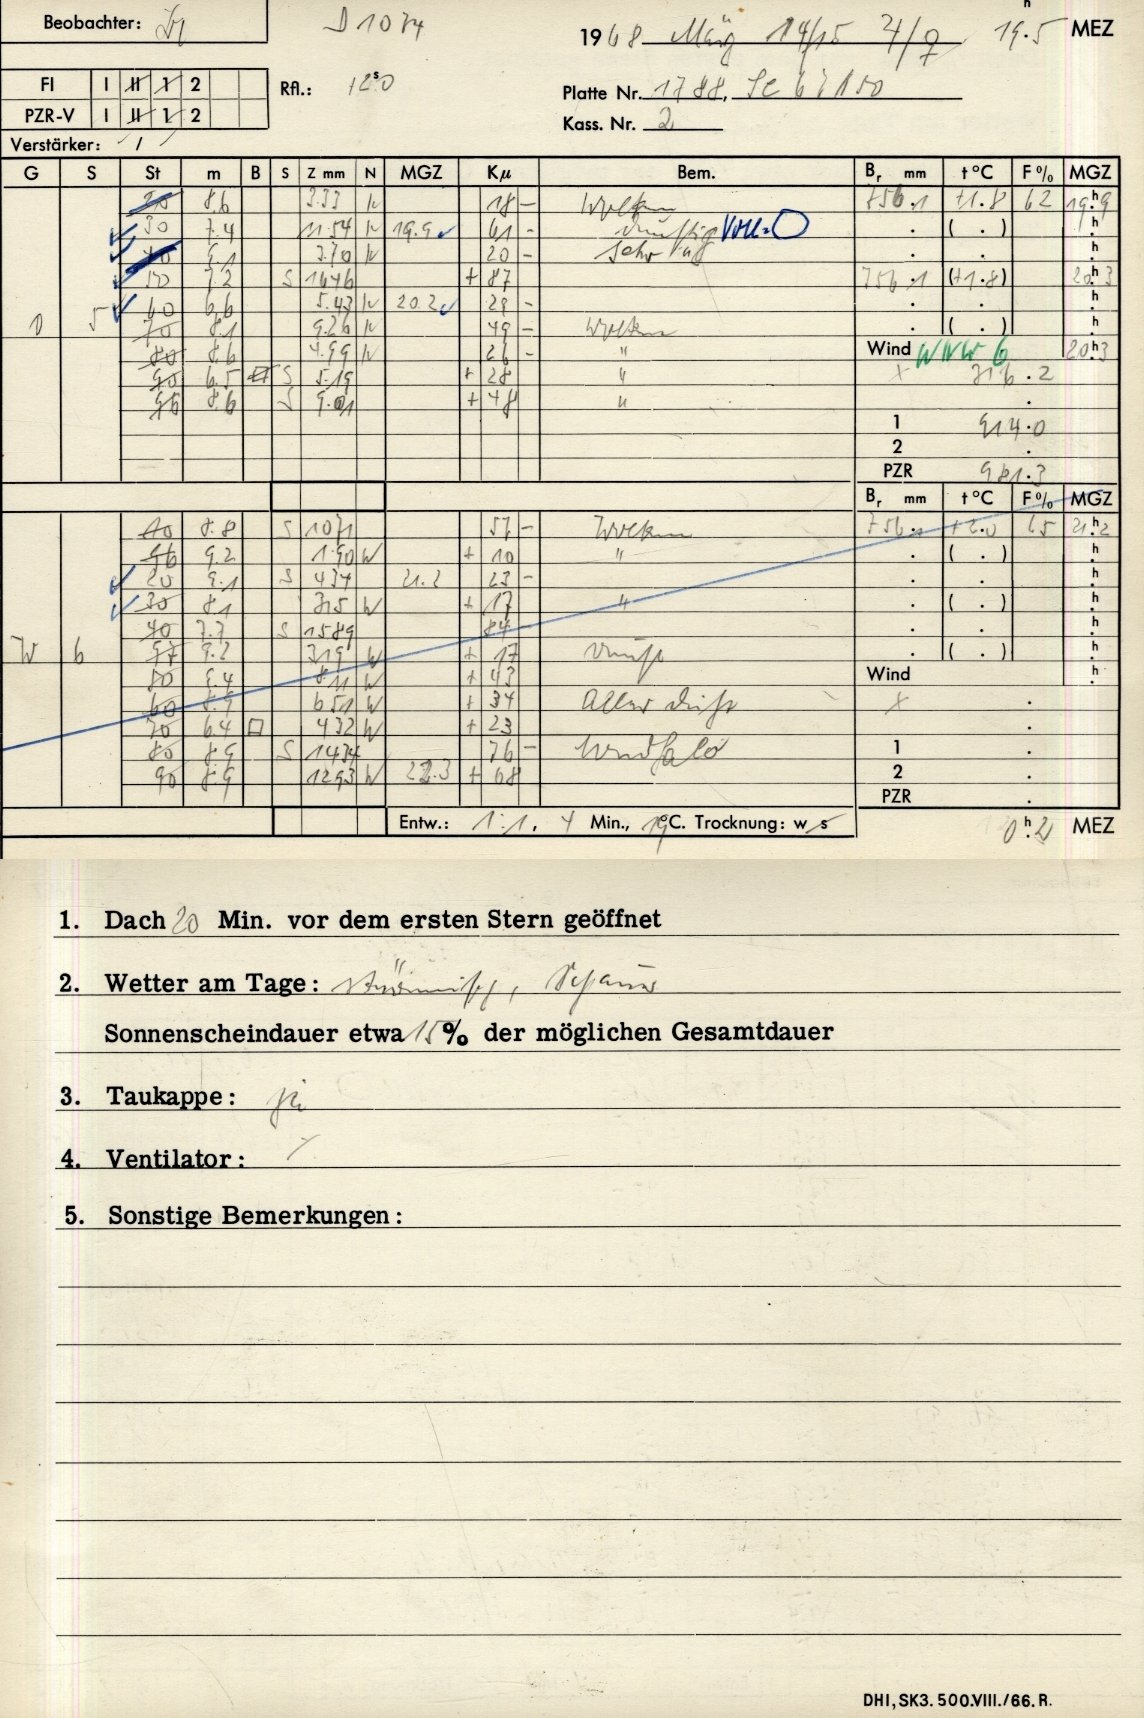 Beobachter:
D 1074
1968 März 14/15 4/♀ 19.5 h MEZ
FI I II 1 2
PZR-V I II 1 2
Rfl.: 12.s0
Platte Nr. 1788,
Kass. Nr. 2
Verstärker: 1
G S St m B S Z mm N MGZ Kμ Bem. Br mm t °C F% MGZ
8.6 3.33 N 18 – Wolken 756.1 +1.8 62 19.h9
30 7.4 11.54 N 19.9 61 – dunstig Voll- ( . ) h
9.1 3.70 N 20 – sehr h
50 7.2 S 1646 + 87 756.1 (+1.8) 20.h3
0 5 60 6.6 5.43 N 20.2 29 – h
70 8.1 9.26 N 49 – Wolken ( . ) h
80 8.6 4.99 N 26 – " Wind WNW 6 20.h3
90 6.5 S 5.19 + 28 " 716.2
96 8.6 S 9.01 + 48 "
1 914.0
2 .
PZR 981.3
Br mm t °C F% MGZ
10 8.8 S 1071 57 – Wolken 756. +2.0 65 21.h2
96 9.2 1.90 W + 10 " ( . ) h
20 9.1 S 434 21.2 23 – h
30 8.1 315 W + 17 " ( . ) h
40 7.7 S 1589 84 – h
W 6 97 9.2 319 W + 17 ( . ) h
50 9.4 811 W + 43 Wind h
60 8.9 651 W + 34
70 6.4 432 W + 23
80 8.9 S 1434 76 – 1
90 8.9 1293 W 22.3 + 68 2
PZR .
Entw.: 1:1, 4 Min., 19°C. Trocknung: w s 0.h2 MEZ
1. Dach 20 Min. vor dem ersten Stern geöffnet
2. Wetter am Tage: stürmisch, Schauer
Sonnenscheindauer etwa 15% der möglichen Gesamtdauer
3. Taukappe: ja
4. Ventilator:
5. Sonstige Bemerkungen:
DHI, SK3. 500.VIII./66. R.